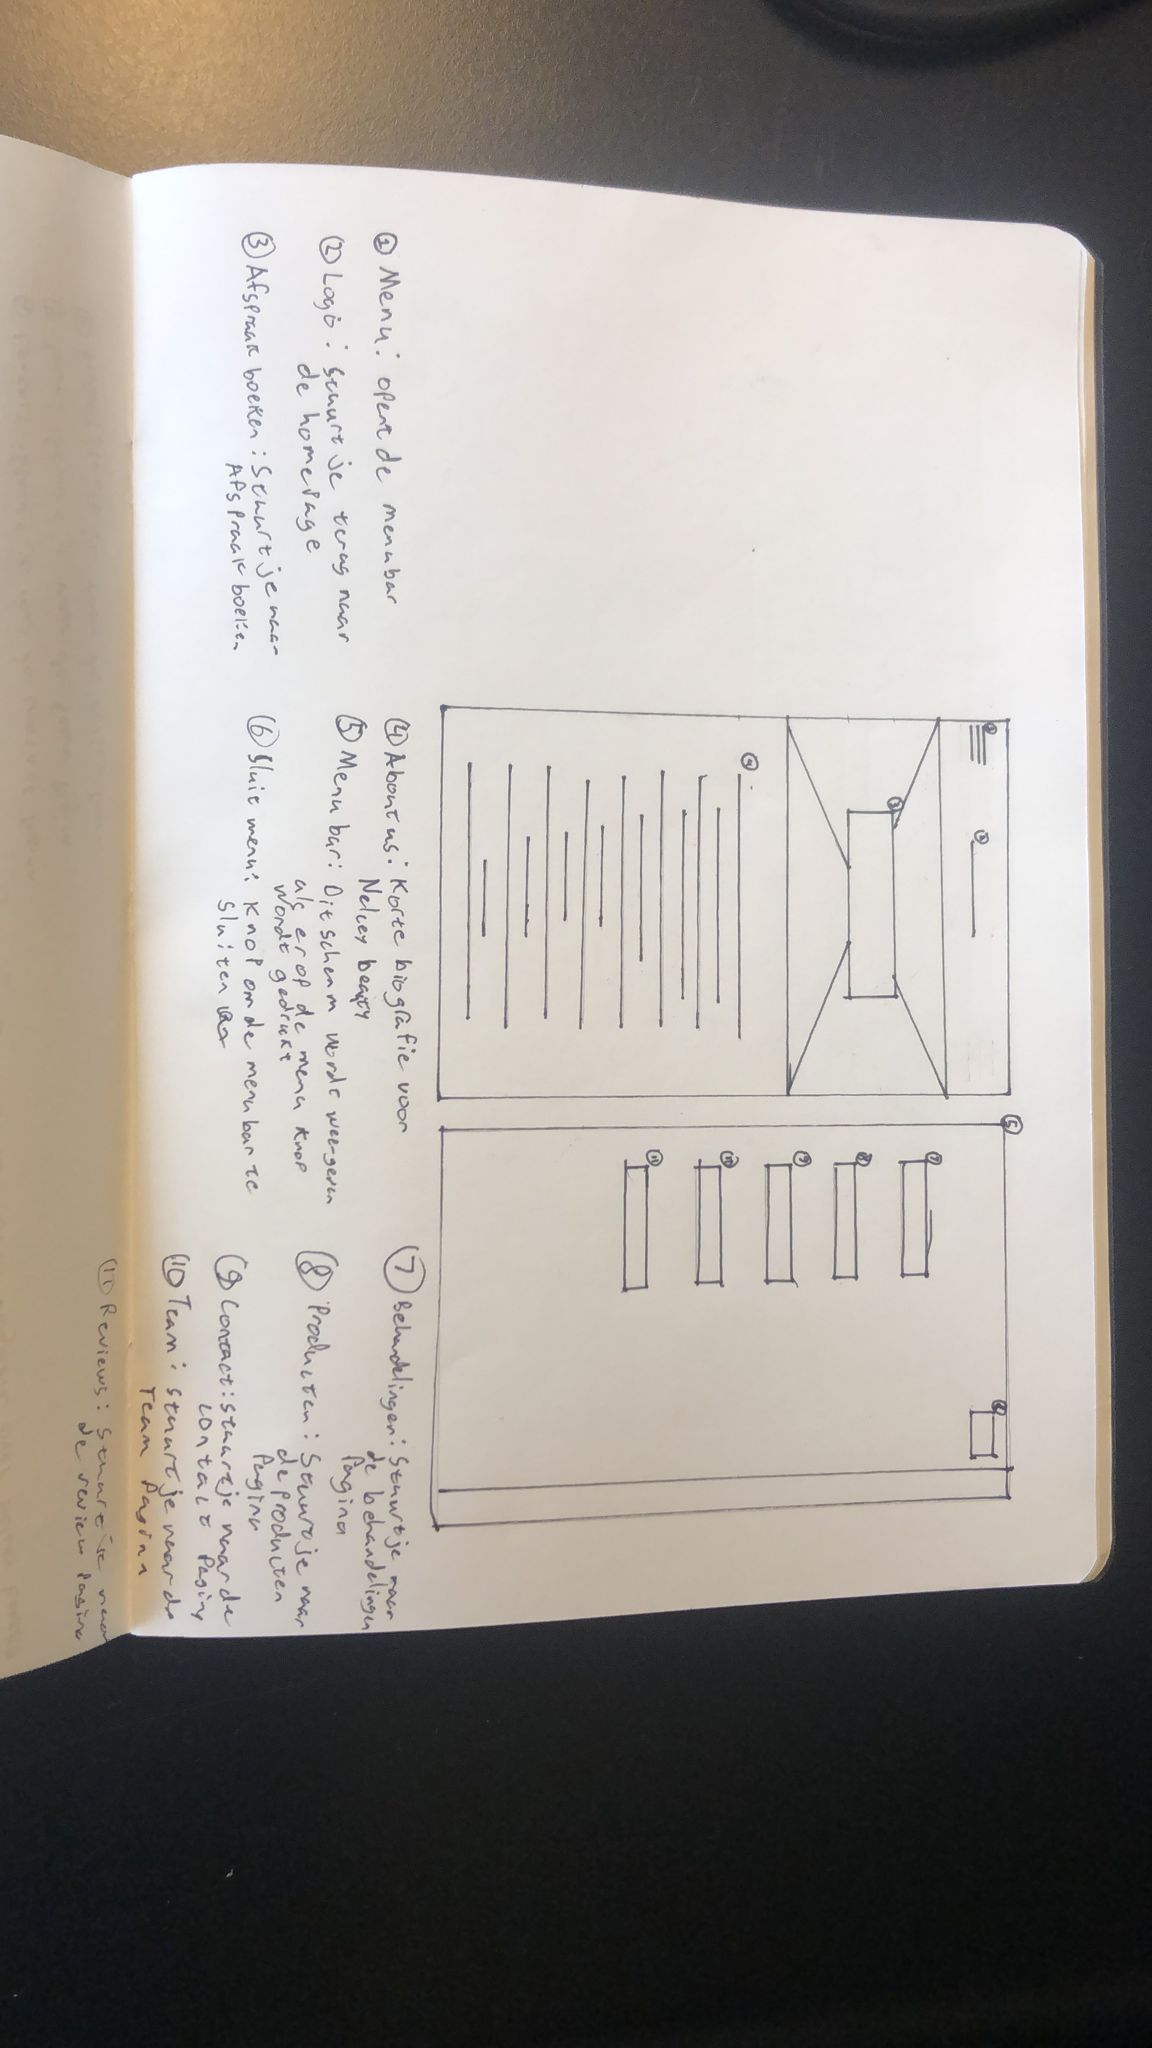 1
2
3
4
5
6
7
8
9
10
11
① Menu: opent de menubar
② Logo: Stuurt je terug naar
de homepage
③ Afspraak boeken: Stuurt je naar
Afspraak boeken
④ About us: Korte biografie voor
Nelcey beaty
⑤ Menu bar: Dit scherm wordt weergeven
als er op de menu knop
wordt gedrukt
⑥ Sluit menu: Knop om de menu bar te
Sluiten
⑦ Behandelingen: Stuurt je naar
de behandelingen
Pagina
⑧ Producten: Stuurt je naar
de producten
Pagina
⑨ Contact: stuurt je naar de
contact Pagina
⑩ Team: stuurt je naar de
Team Pagina
⑪ Reviews: Stuurt je naar
de review Pagina